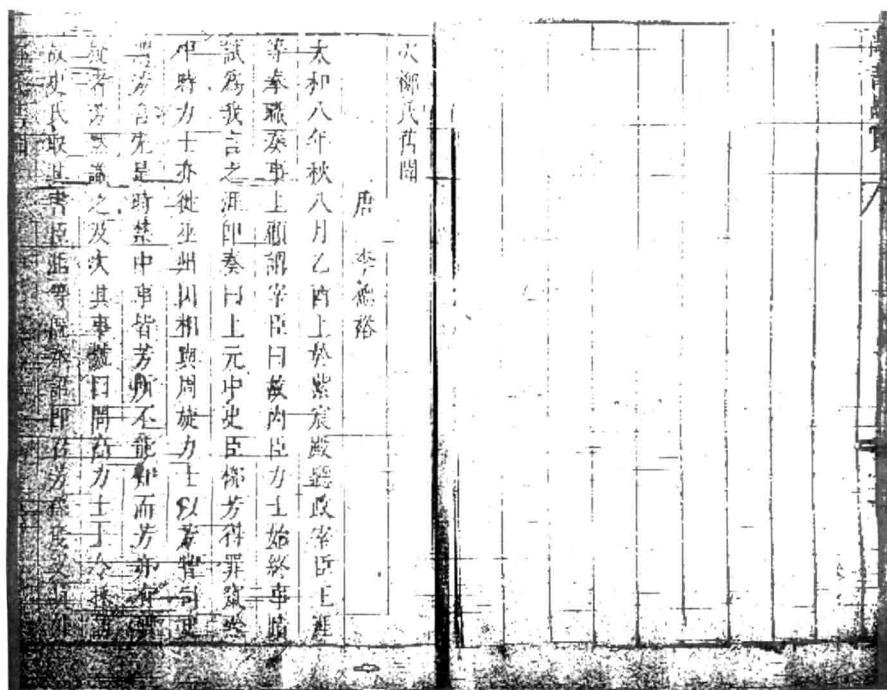 次柳氏舊聞
唐 李德裕
太和八年秋八月乙酉上於紫宸殿聽政宰臣王涯
等奉職奏事上顧謂宰臣曰故內臣力士始終事蹟
試為我言之涯即奏曰上元中史臣柳芳得罪竄黔
中時力士亦徙巫州因相與周旋力士以芳嘗司史
為芳言先是時禁中事皆芳所不能知而芳亦有質
疑者芳默識之及次其事號曰問高力士上令採訪
故史氏取其書臣涯等既奉詔即召芳孫度支員外